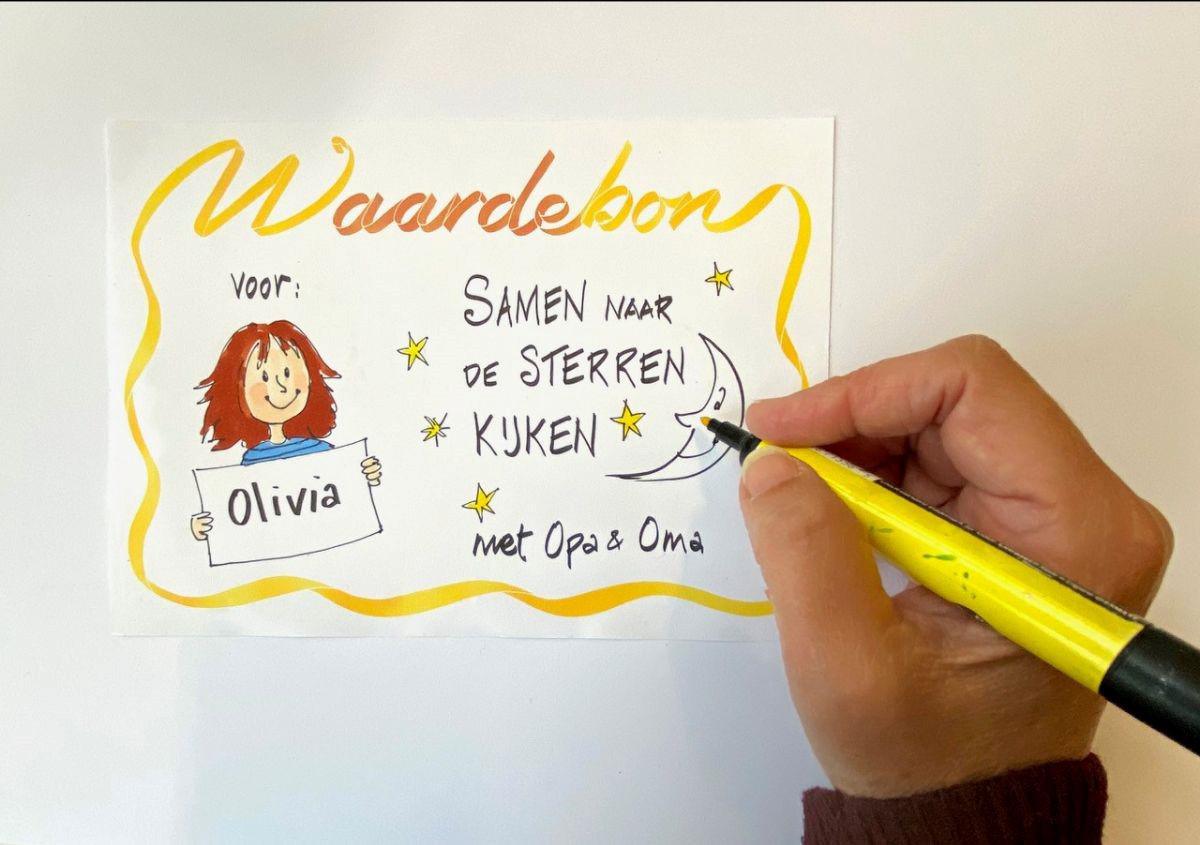 Waardebon
voor:
SAMEN NAAR
DE STERREN
KIJKEN
Olivia
met Opa & Oma